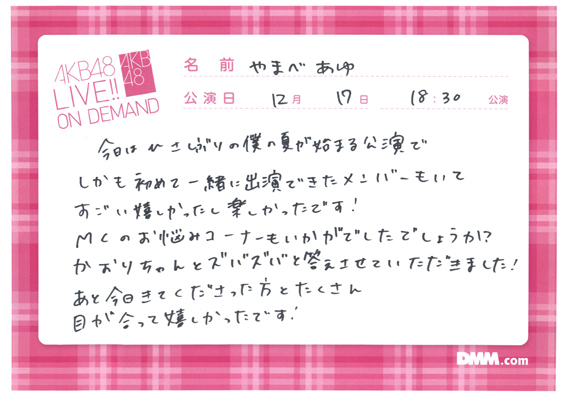 AKB48
LIVE!!
ON DEMAND
AKB
48
名 前 やまべ あゆ
公演日 12月 17日 18:30 公演
今日はひさしぶりの僕の夏が始まる公演で
しかも初めて一緒に出演できたメンバーもいて
すごい嬉しかったし楽しかったです!
MCのお悩みコーナーもいかがでしたでしょうか?
かおりちゃんとズバズバと答えさせていただきました!
あと今日きてくださった方とたくさん
目が合って嬉しかったです!
DMM.com